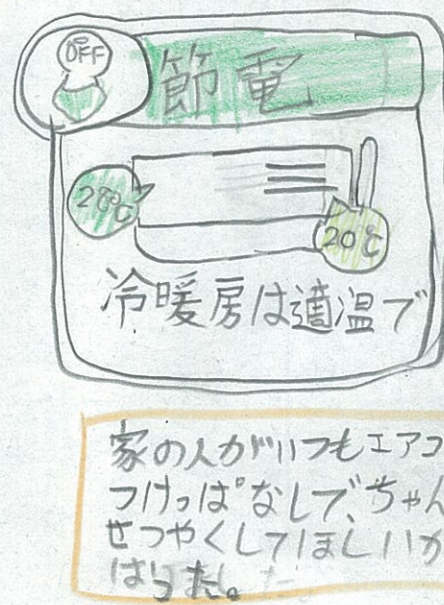 OFF
節電
28℃
20℃
冷暖房は適温で
家の人がいつもエアコ
つけっぱなしで、ちゃん
せつやくしてほしいか
はった。